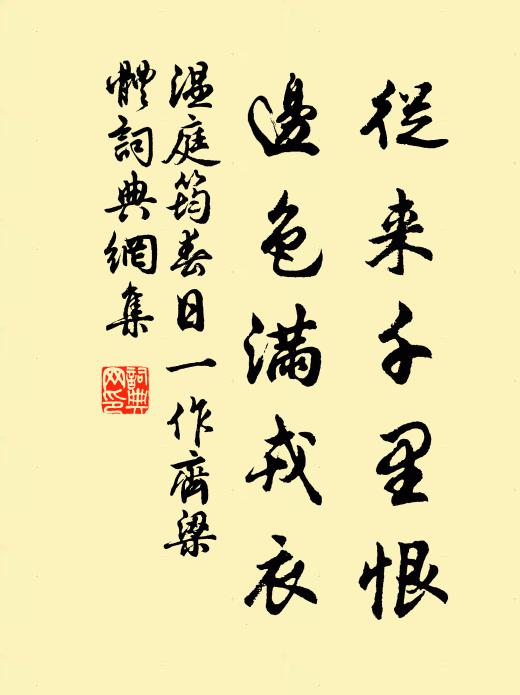 從来千里恨
邊色滿戎衣
温庭筠春日一作齊梁
體詞典網集
詞典網印